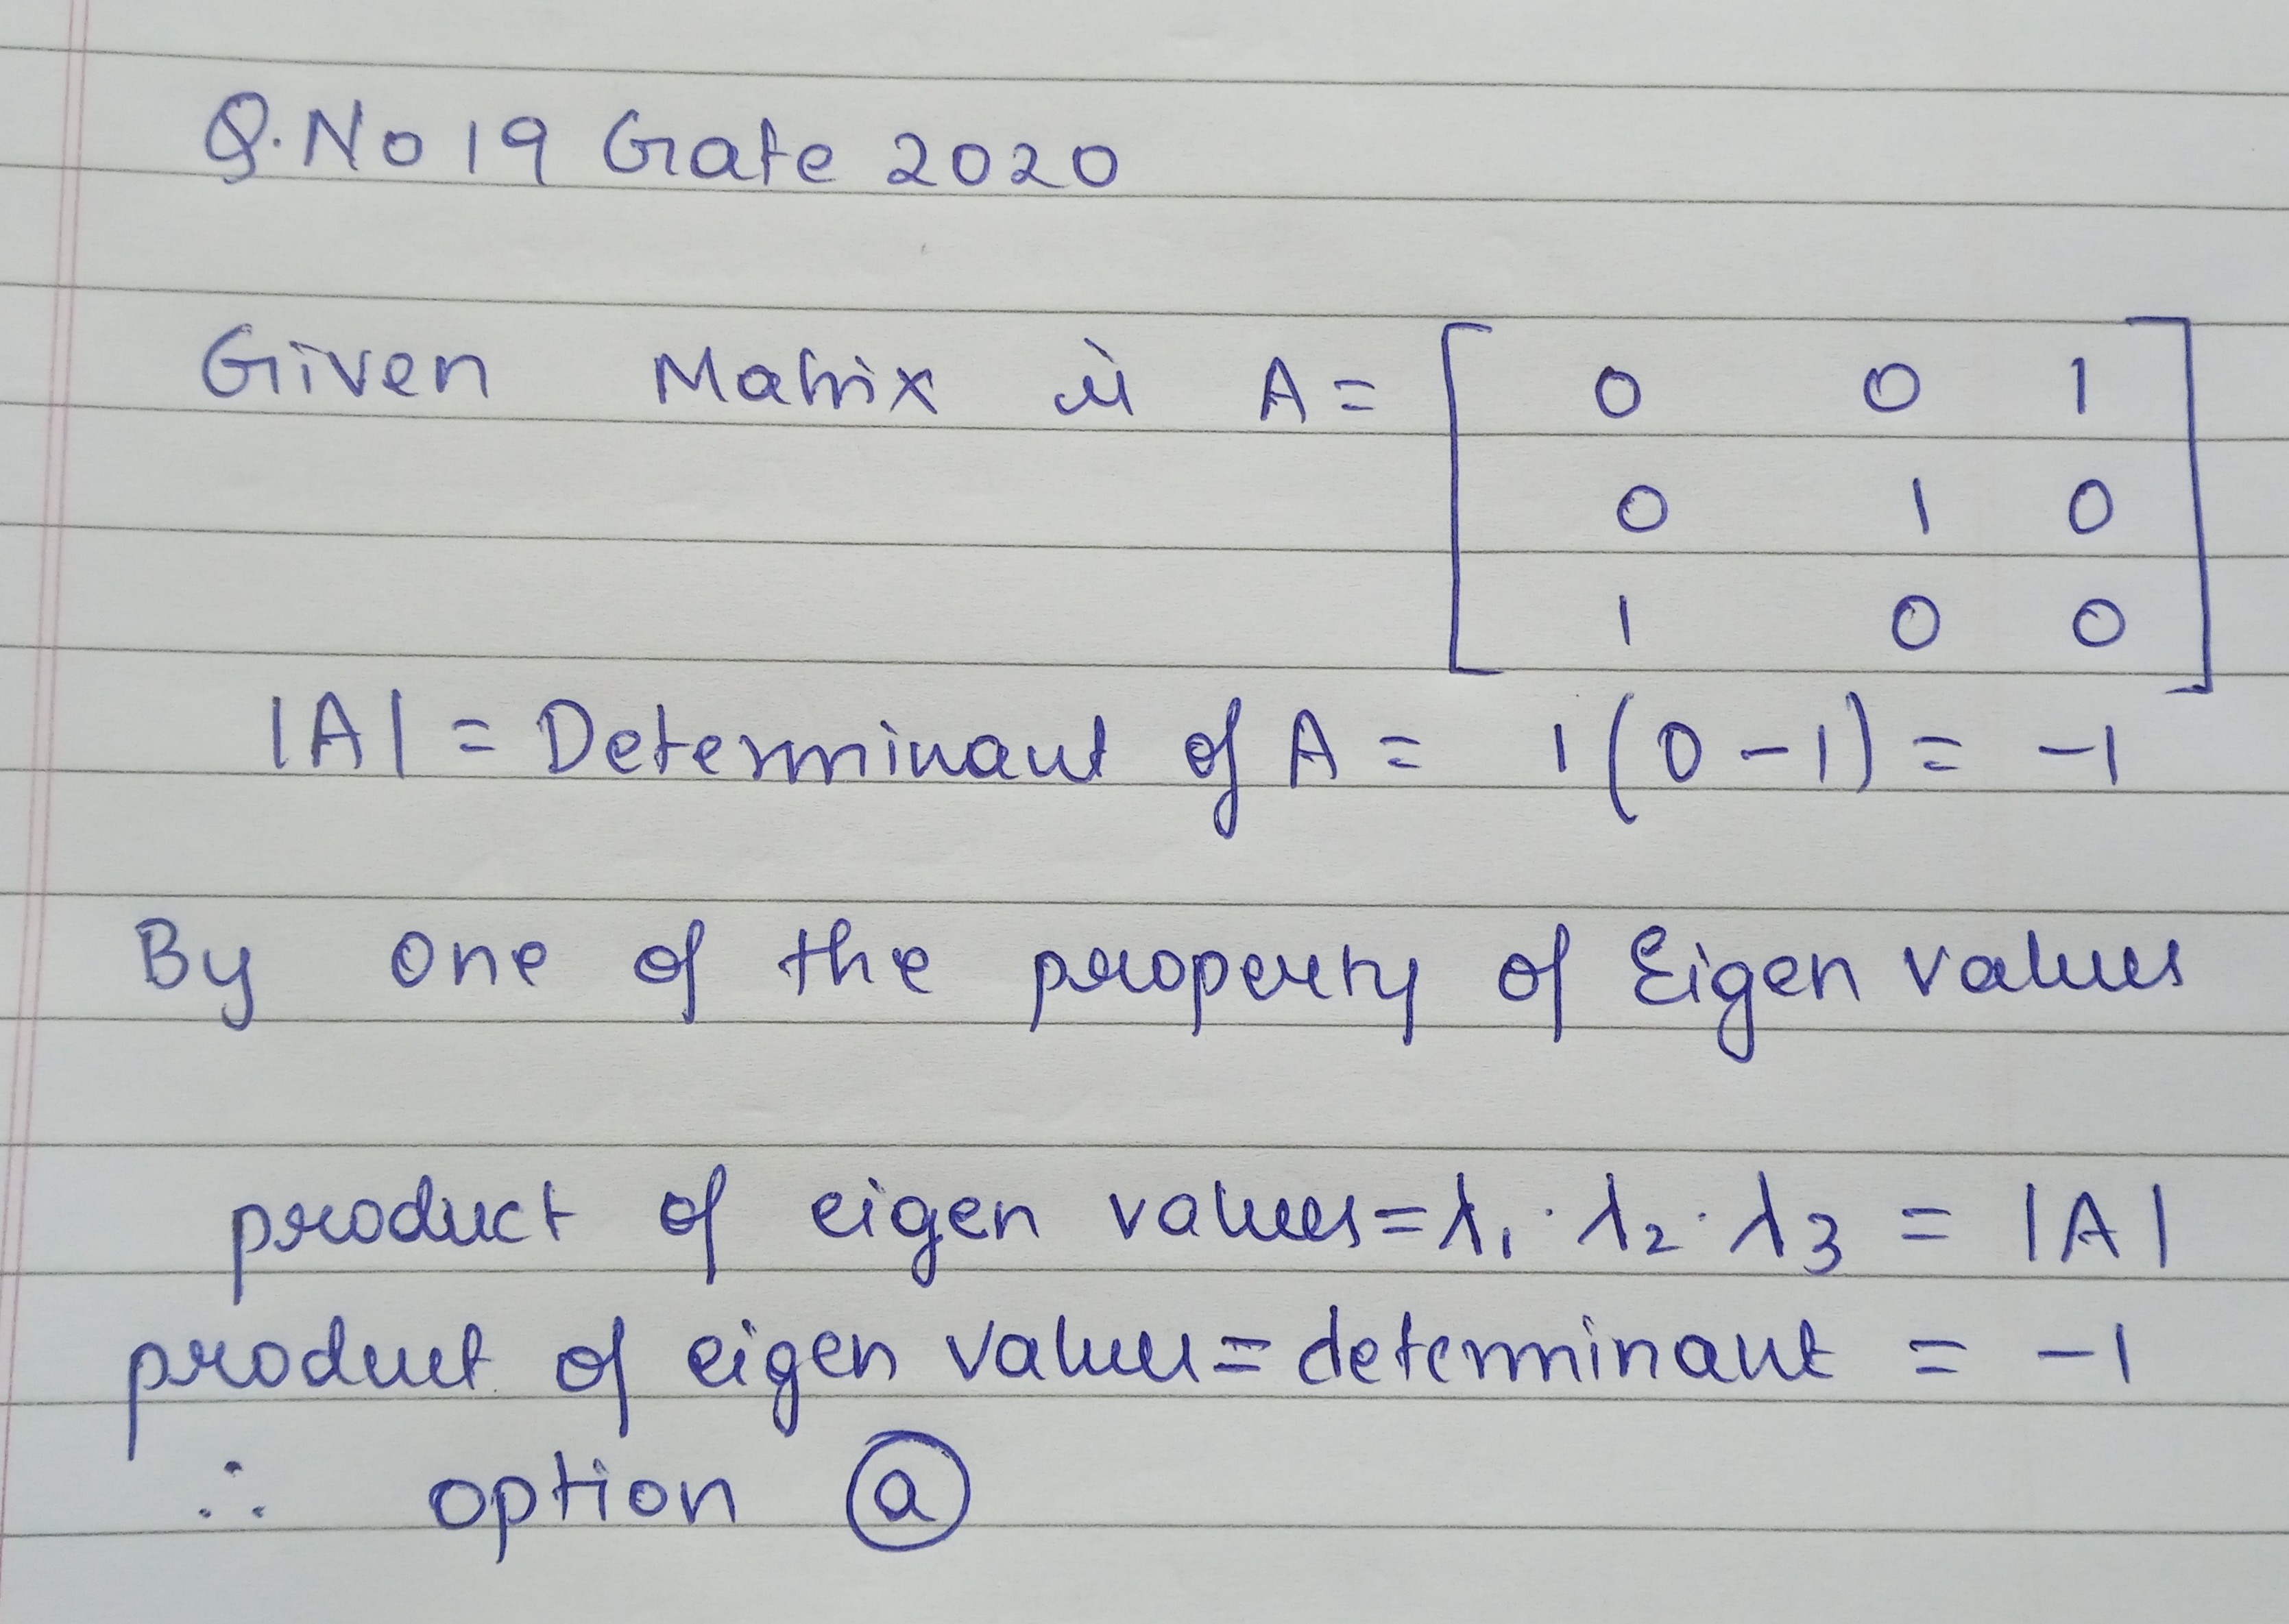 Q.No 19 Gate 2020
Given Matrix is A = [ 0 0 1
0 1 0
1 0 0 ]
|A| = Determinant of A = 1(0-1) = -1
By one of the property of Eigen values
product of eigen values = λ₁·λ₂·λ₃ = |A|
product of eigen values = determinant = -1
∴ option ⓐ